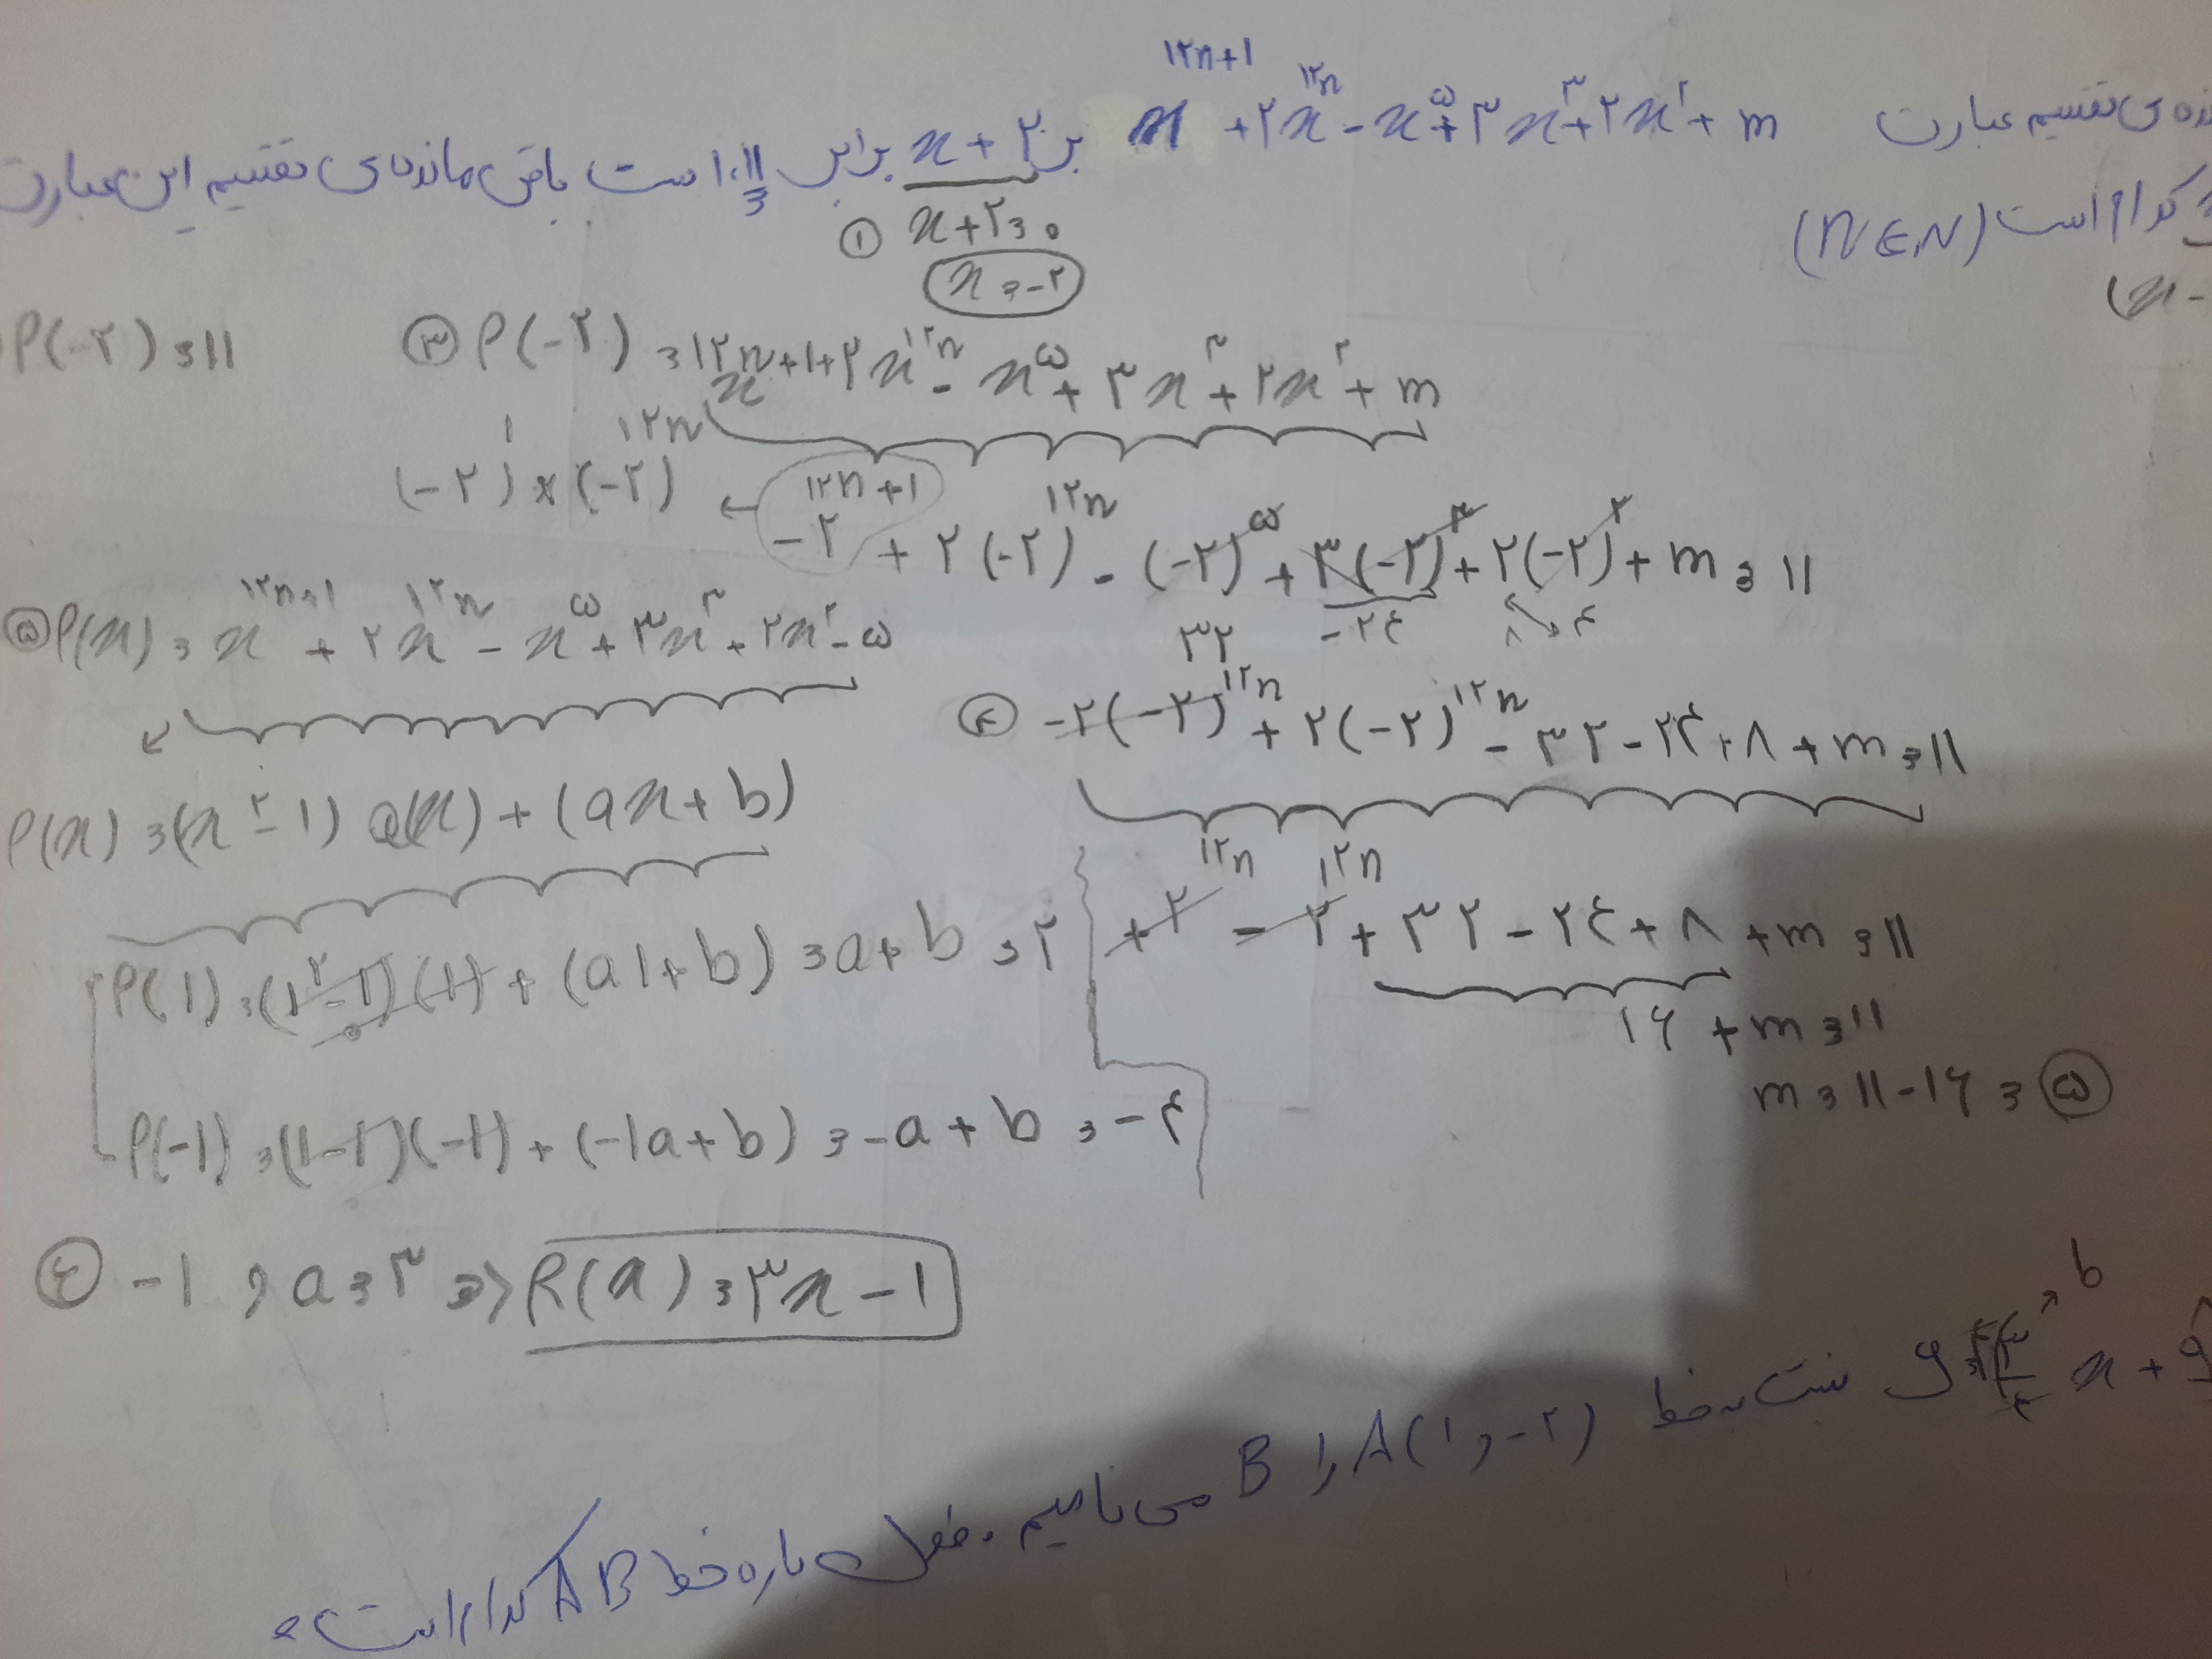 تقسیم عبارت x^{۱۲n+۱} + ۲x^{۱۲n} - x^۵ + ۳x^۳ + ۲x^۲ + m
بر x + ۲ برابر ۱۱ است باقی مانده‌ی تقسیم این عبارت
کدام است (n ∈ N)
① x + ۲ = ۰
x = -۲
P(-۲) = ۱۱
③ P(-۲) = x^{۱۲n+۱} + ۲x^{۱۲n} - x^۵ + ۳x^۳ + ۲x^۲ + m
(-۲)^۱ × (-۲)^{۱۲n} ← -۲^{۱۲n+۱} + ۲(-۲)^{۱۲n} - (-۲)^۵ + ۳(-۲)^۳ + ۲(-۲)^۲ + m = ۱۱
۳۲ -۲۴ ۸ ۴
④ -۲(-۲)^{۱۲n} + ۲(-۲)^{۱۲n} - ۳۲ - ۲۴ + ۸ + m = ۱۱
+۲^{۱۲n} - ۲^{۱۲n} + ۳۲ - ۲۴ + ۸ + m = ۱۱
۱۶ + m = ۱۱
m = ۱۱ - ۱۶ = ⑤
⑤ P(x) = x^{۱۲n+۱} + ۲x^{۱۲n} - x^۵ + ۳x^۳ + ۲x^۲ - ۵
P(x) = (x^۲ - ۱) Q(x) + (ax + b)
P(۱) = (۱^۲ - ۱)(۱) + (a۱ + b) = a + b = ۲
۰
P(-۱) = (۱-۱)(-۱) + (-۱a + b) = -a + b = -۴
④ -۱ , a = ۳ => R(x) = ۳x - ۱
b
نسبت به خط A(۱ و -۲) را B می نامیم. طول پاره خط AB کدام است؟